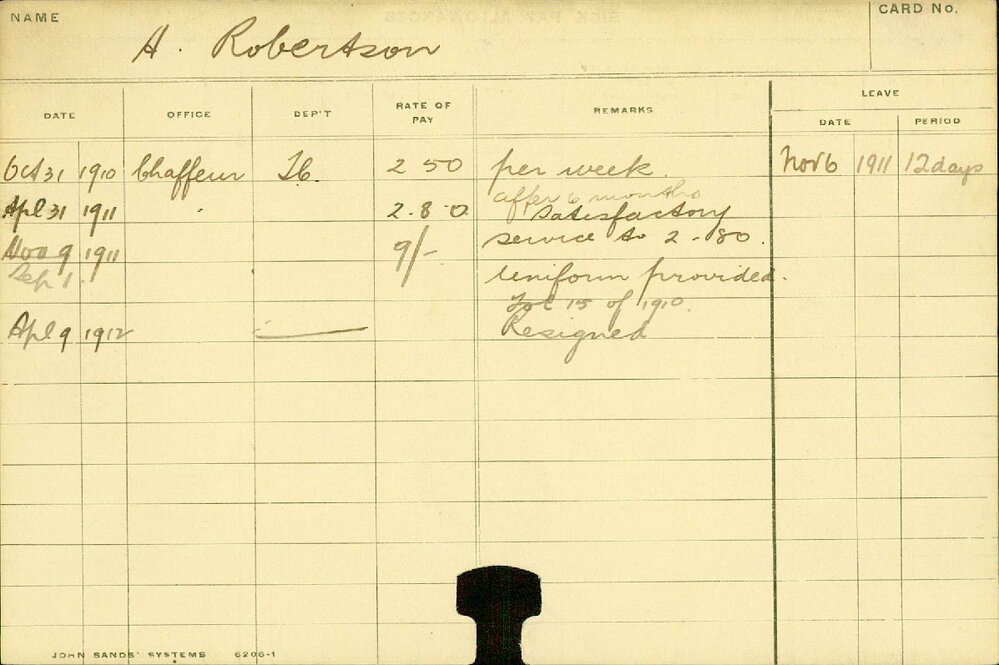 NAME
A. Robertson
CARD No.
DATE OFFICE DEP'T RATE OF PAY REMARKS LEAVE
DATE PERIOD
Oct 31 1910 Chaffeur 2 50 per week. Nov 6 1911 12 days
after 6 months
Apl 31 1911 " 2.8.0 Satisfactory
service to 2-80.
Nov 9 1911 9/-
Sep 1. Uniform provided.
15 of 1910.
Apl 9 1912 Resigned
JOHN SANDS' SYSTEMS 6206-1